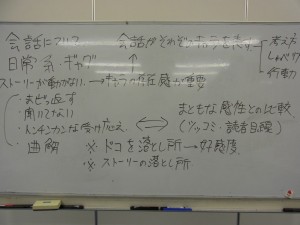 会話について
会話がそれぞれのキャラを表す
考え方
しゃべり
行動
日常系・ギャグ
↑
ストーリーが動かない → キャラの存在感が重要
・まぜっ返す
・聞いてない
・トンチンカンな受け応え
曲解
⇔
まともな感性との比較
(ツッコミ・読者目線)
※ドコを落とし所→好感度
※ストーリーの落とし所